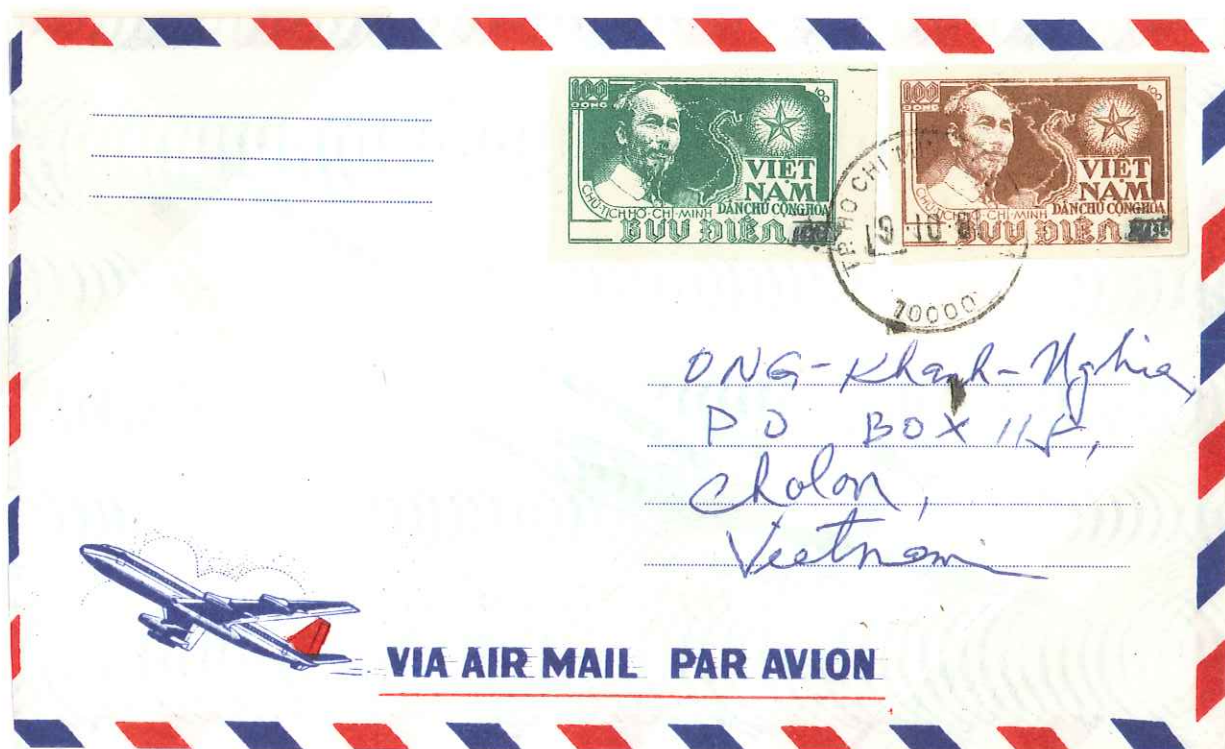 100
DONG
100
VIỆT
NAM
DÂN CHỦ CỘNG HÒA
CHỦ TỊCH HỒ-CHÍ-MINH
BƯU ĐIỆN
100
DONG
100
VIỆT
NAM
DÂN CHỦ CỘNG HÒA
HỒ-CHÍ-MINH
BƯU ĐIỆN
TP. HO CHI
70000
ONG-Khanh-Nghia,
P O BOX 115,
Cholon,
Vietnam
VIA AIR MAIL PAR AVION